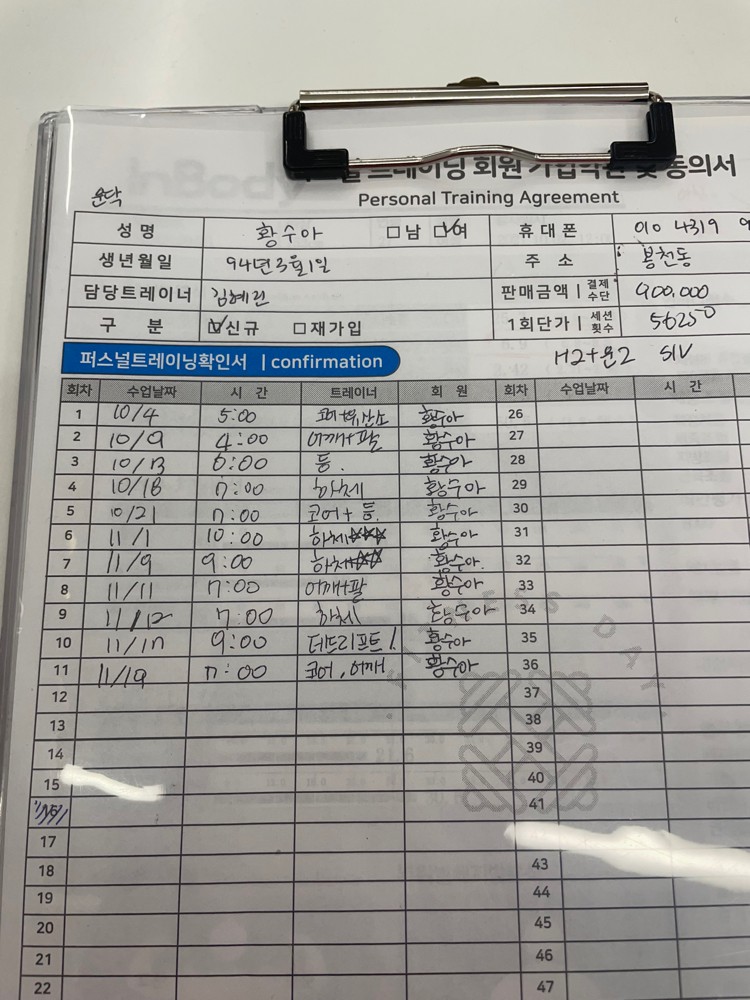 InBody
트레이닝 회원 가입약관 및 동의서
Personal Training Agreement
운닥
성 명 황수아 □남 ☑여 휴 대 폰 010 4319 9
생년월일 94년3월1일 주 소 봉천동
담당트레이너 김혜린 판매금액 | 결제수단 900,000
구 분 ☑신규 □재가입 1회단가 | 세션횟수 56250
퍼스널트레이닝확인서 | confirmation
회차 수업날짜 시 간 트레이너 회 원 회차 수업날짜 시 간
1 10/4 5:00 코어+유산소 황수아 26
2 10/9 4:00 어깨+팔 황수아 27
3 10/13 6:00 등. 황수아 28
4 10/18 7:00 하체 황수아 29
5 10/21 7:00 코어+등 황수아 30
6 11/1 10:00 하체 황수아 31
7 11/9 9:00 하체 황수아. 32
8 11/11 7:00 어깨+팔 황수아 33
9 11/12 7:00 하체 황수아 34
10 11/17 9:00 데드리프트 황수아 35
11 11/19 7:00 코어, 어깨 황수아 36
12 37
13 38
14 39
15 40
41
17
18 43
19 44
20 45
21 46
22 47
FITNESS DAY